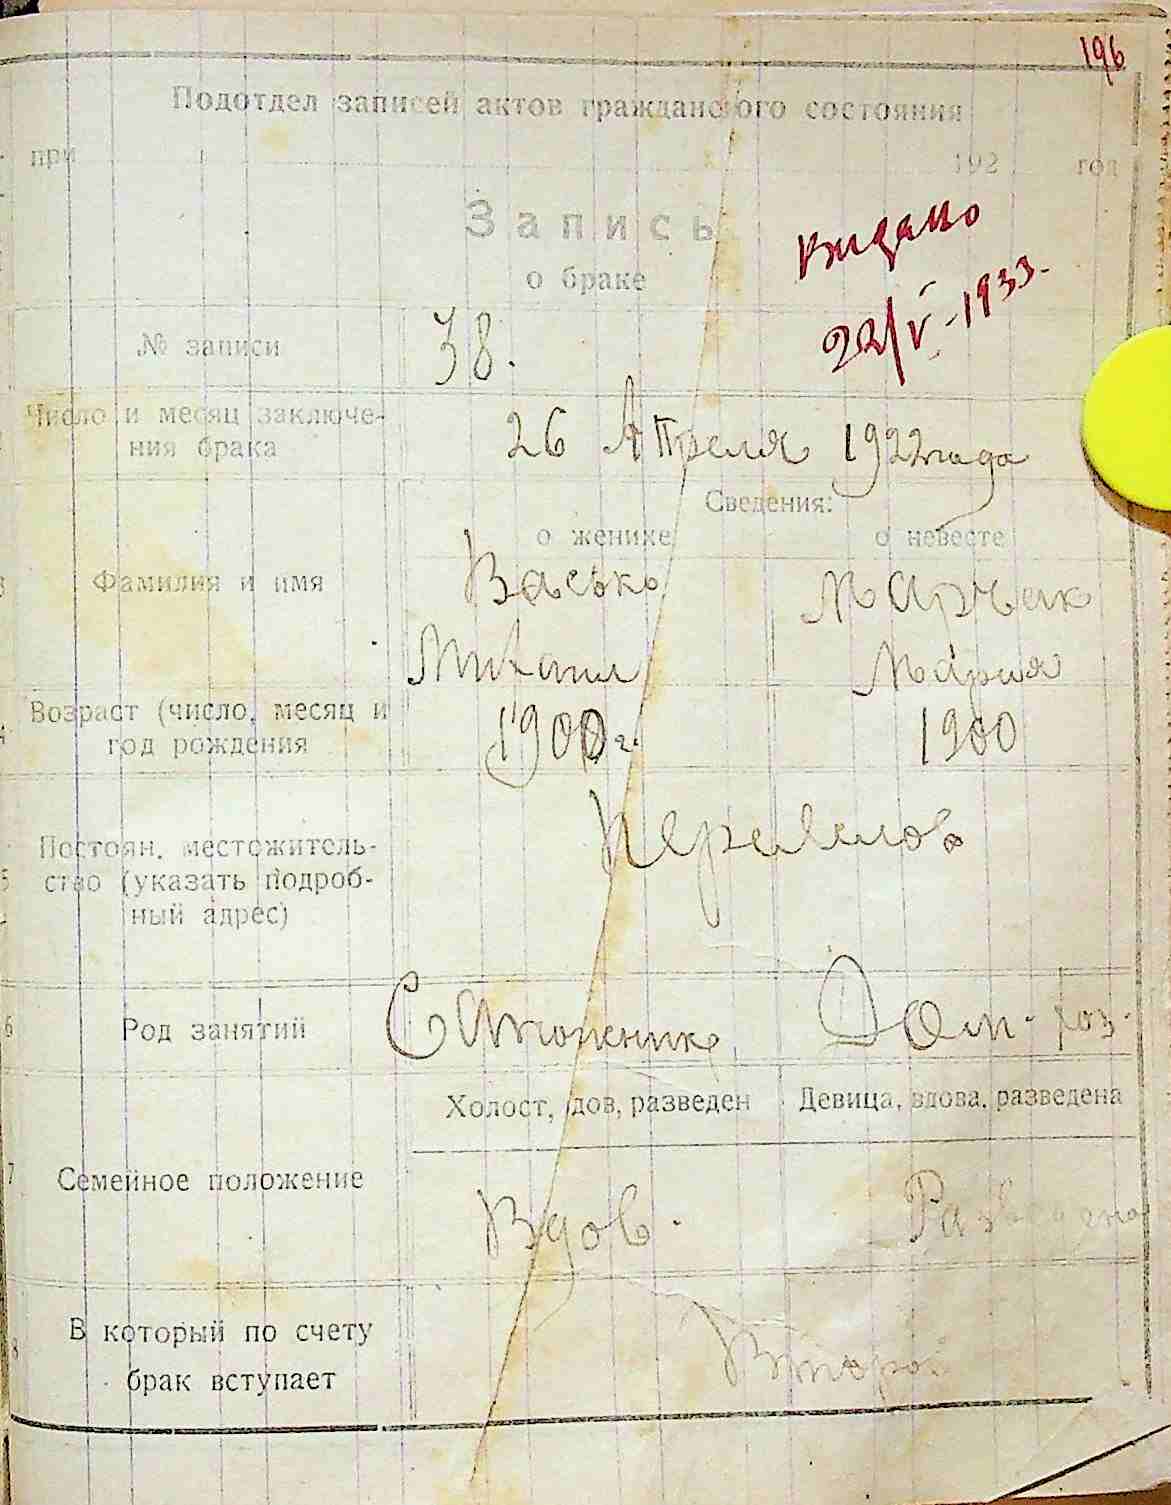 196
Подотдел записей актов гражданского состояния
при 192 год
Запись
о браке
выдано
22/V-1933.
№ записи 38.
Число и месяц заключе-
ния брака
26 Апреля 1922 года
Сведения:
о женихе о невесте
Фамилия и имя
Васько Марчак
Михаил Мария
Возраст (число, месяц и
год рождения
1900 г. 1900
Постоян. местожитель-
ство (указать подроб-
ный адрес)
6 Род занятий Сапожник Дом. хоз.
Холост, вдов, разведен Девица, вдова, разведена
7 Семейное положение
Вдов. Разведена
8 В который по счету
брак вступает
Второй